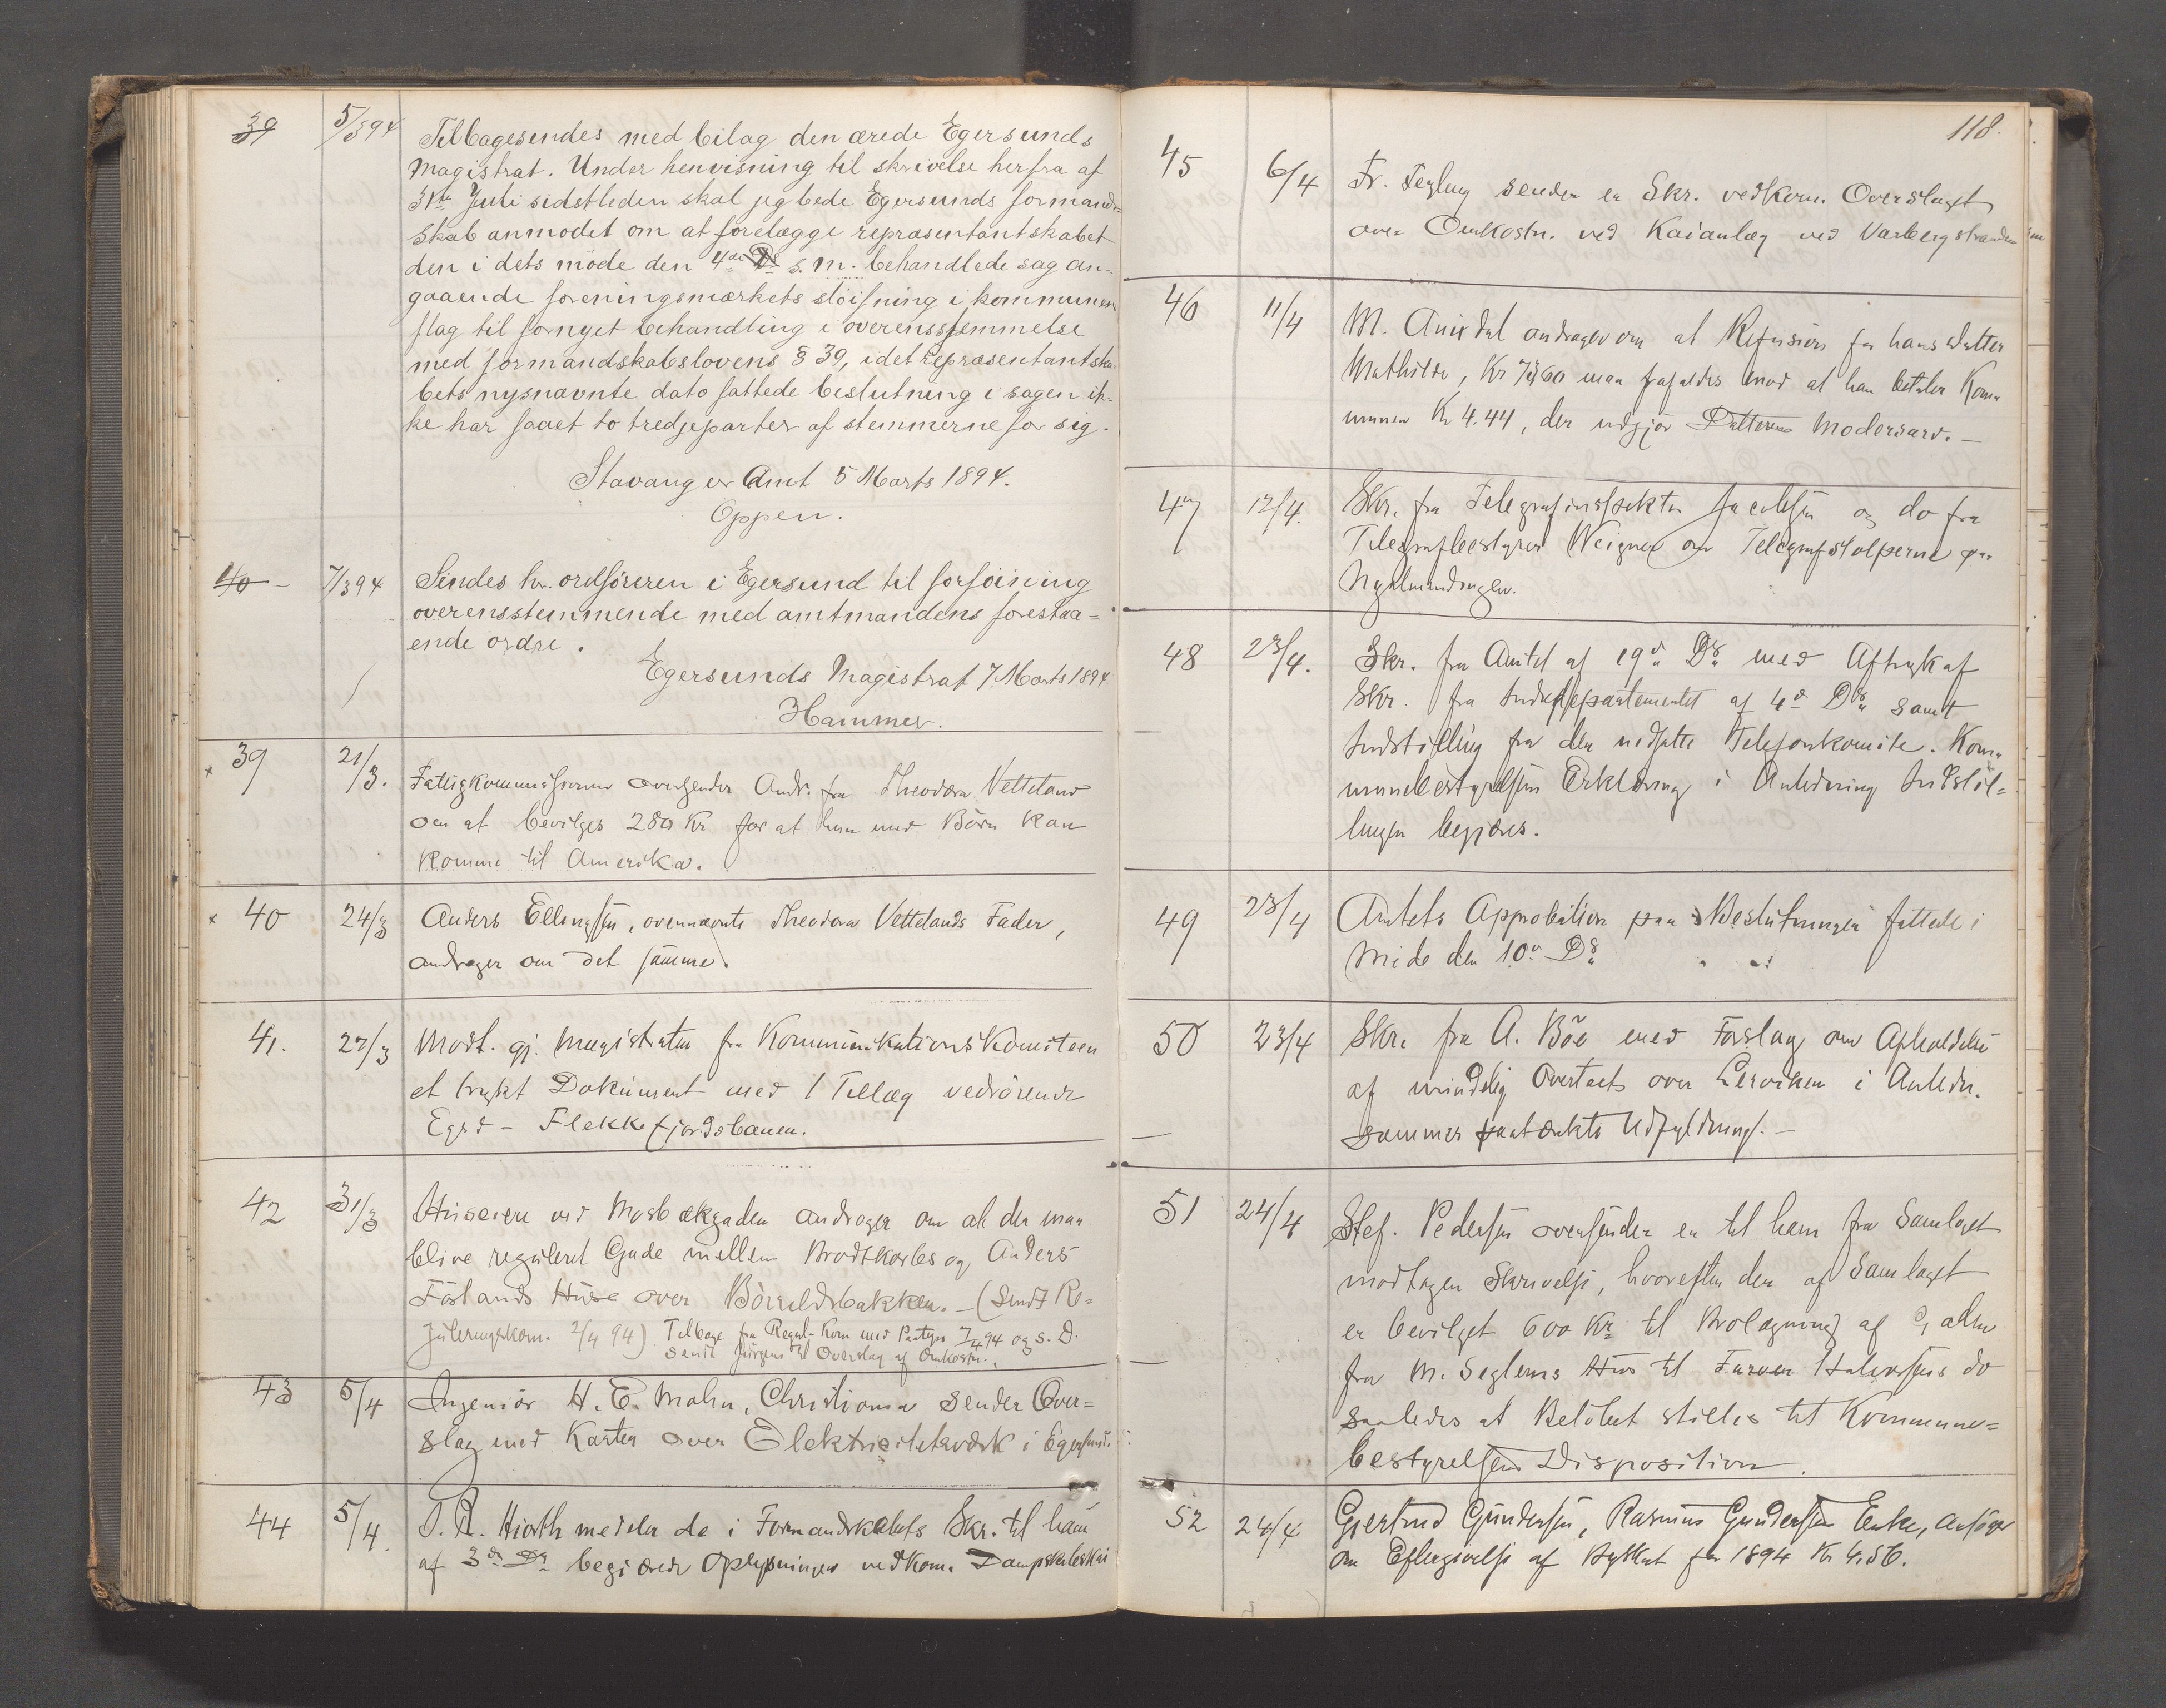 39 5/3 94 Tilbagesendes med bilag den ærede Egersunds
magistrat. Under henvisning til skrivelse herfra af
31te Juli sidstleden skal jeg bede Egersunds formand-
skab anmodet om at forelægge repræsentantskabet
den i dets møde den 4de s. m. behandlede sag an-
gaaende foreningsmærkets sløifning i kommunens
flag til fornyet behandling i overensstemmelse
med formandskabslovens § 39, idet repræsentantska-
bets nysnævnte dato fattede beslutning i sagen ik-
ke har faaet to tredjeparter af stemmerne for sig.
Stavanger Amt 5 Marts 1894.
Oppen.
40 - 7/3 94 Sendes hr. ordføreren i Egersund til forføining
overensstemmende med amtmandens forestaa=
ende ordre.
Egersunds Magistrat 7 Marts 1894
Hammer.
x 39 21/3. Fattigkommissionen oversender Andr. fra Theodora Vetteland
om at bevilges 280 Kr for at hun med Börn kan
komme til Amerika.
x 40 24/3 Anders Ellingsen, ovennævnte Theodora Vettelands Fader,
andrager om det samme.
41. 27/3 Modt. gj. Magistraten fra Kommunikationskomiteen
et trykt Dokument med 1 Tillæg vedrörende
Egsd - Flekkefjordsbanen.
42 31/3 Huseiere ved Mosbækgaden andrager om at der maa
blive reguleret Gade mellem Brodtkorbs og Anders
Fötlands Huse over Börrildsbakken. - (Sendt Re-
guleringskom. 2/4 94) Tilbage fra Regul-Kom med 7/4 94 og s. D.
sendt Jürgens til Overslag af Omkostn.
43 5/4 Ingeniör H. E. Mohn, Christiania sender Over=
slag med Karter over Elektricitetsværk i Egersund.
44 5/4. T. R. Hiorth meddeler de i Formandskabets Skr. til ham
af 3de Ds begjærede Oplysninger vedkom. Dampskibskai
118.
45 6/4 Fr. Feyling sender en Skr. vedkom. Overslaget
over Omkostn. ved Kaianlæg ved Varbergstranden
46 11/4 M. andrager om at Refusion for hans Datter
Mathilde, Kr 73,60 maa frafaldes mod at han betaler Kom=
munen Kr 4.44, der udgjör Datterens Modersarv. -
47 12/4. Skr. fra Telegrafinspektør Jacobsen og do fra
Telegrafbestyrer Weigner om Telegrafstolperne paa
Nyalmindingen.
48 23/4. Skr. fra Amtet af 19de Ds med Aftryk af
Skr. fra Indredepartementet af 4de Ds samt
Indstilling fra den nedsatte Telefonkomite. Kom=
munebestyrelsens Erklæring i Anledning Indstil=
lingen begjæres.
49 23/4 Amtets Approbation paa Beslutninger fattede i
Möde den 10de Ds
50 23/4 Skr. fra A. Böe med Forslag om Afholdelse
af mindelig Overtaxt over Lervigen i Anledn.
sammes paatænkte Udfyldning. -
51 24/4 Stef. Pedersen oversender en til ham fra Samlaget
modtagen Skrivelse, hvorefter der af Samlaget
er bevilget 600 Kr til Brolægning af Gaden
fra M. Seglems Hus til Farver Halvorsens do
saaledes at Belöbet stilles til Kommune=
bestyrelsens Disposition.
52 24/4 Gjertrud Gundersen, Rasmus Gundersens Enke, ansöger
om Eftergivelse af Byskat for 1894 Kr 4.56.